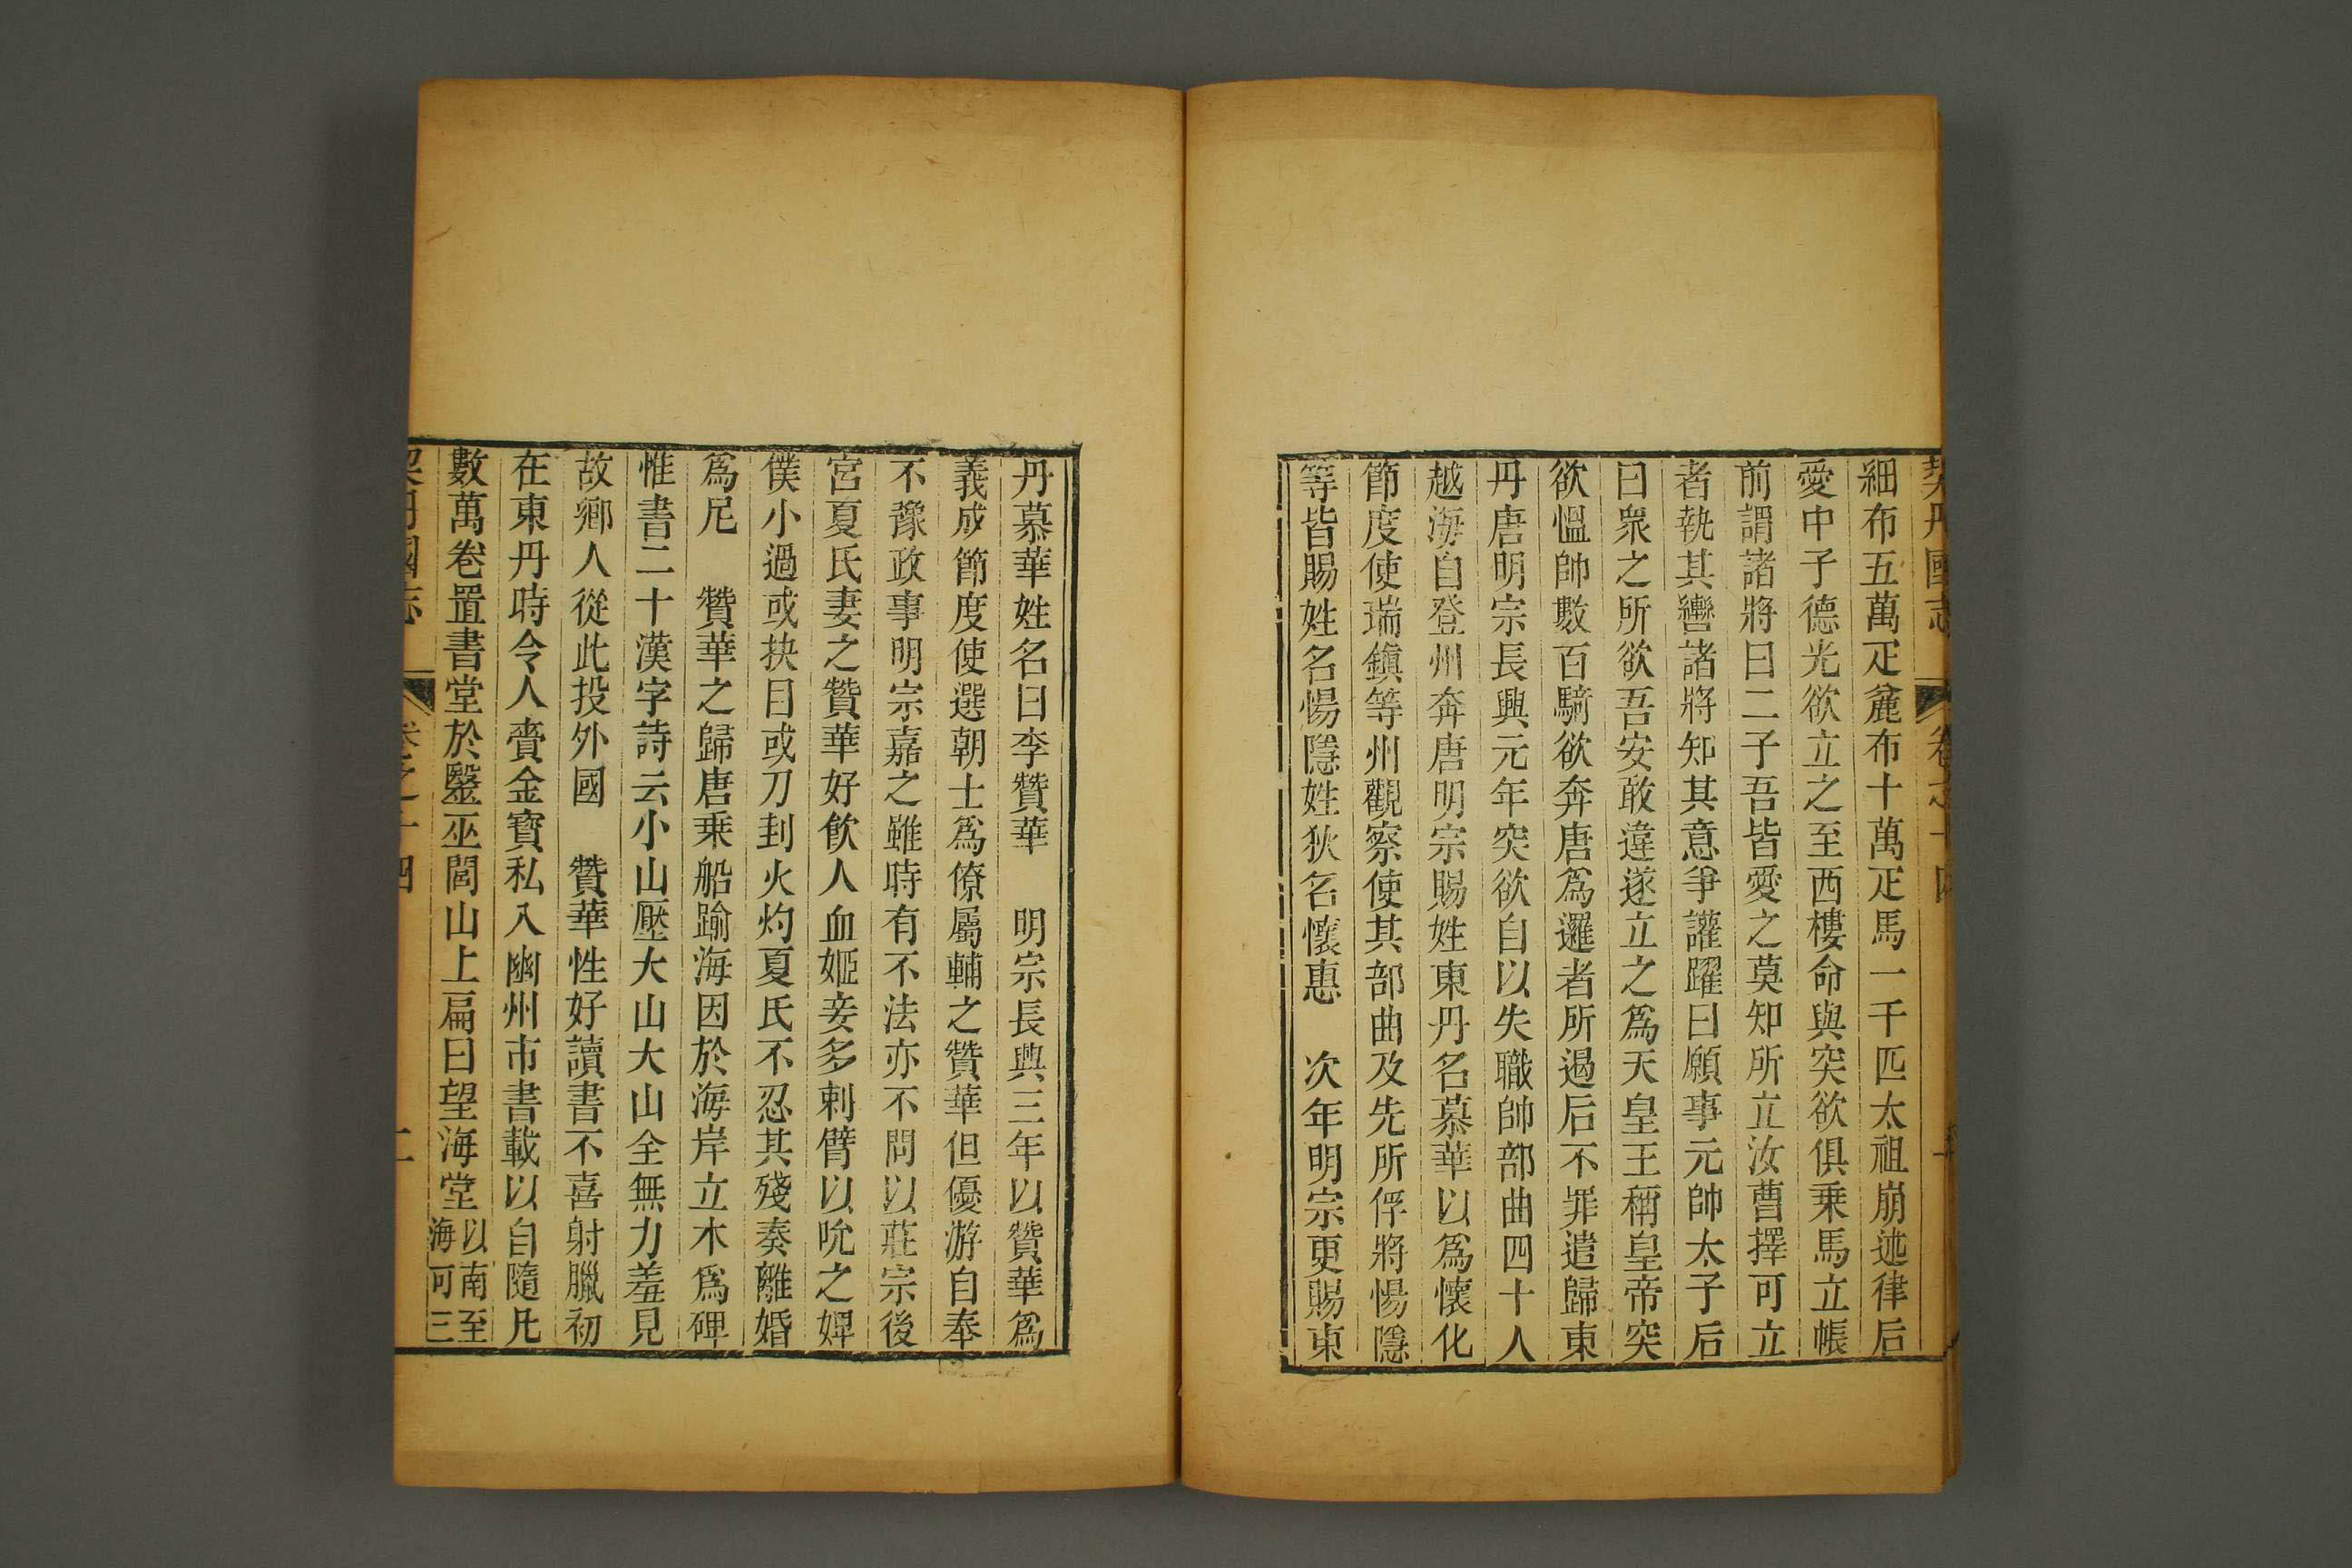 契丹國志 卷之十四
細布五萬疋麄布十萬疋馬一千匹太祖崩述律后
愛中子德光欲立之至西樓命與突欲俱乗馬立帳
前謂諸將曰二子吾皆愛之莫知所立汝曹擇可立
者執其轡諸將知其意爭讙躍曰願事元帥太子后
曰衆之所欲吾安敢違遂立之爲天皇王稱皇帝突
欲愠帥數百騎欲奔唐爲邏者所遏后不罪遣歸東
丹唐明宗長興元年突欲自以失職帥部曲四十人
越海自登州奔唐明宗賜姓東丹名慕華以爲懷化
節度使瑞鎮等州觀察使其部曲及先所俘將惕隱
等皆賜姓名惕隱姓狄名懷惠 次年明宗更賜東
丹慕華姓名曰李贊華 明宗長興三年以贊華爲
義成節度使選朝士爲僚屬輔之贊華但優游自奉
不豫政事明宗嘉之雖時有不法亦不問以莊宗後
宮夏氏妻之贊華好飲人血姬妾多刺臂以吮之婢
僕小過或抉目或刀刲火灼夏氏不忍其殘奏離婚
爲尼 贊華之歸唐乗船踰海因於海岸立木爲碑
惟書二十漢字詩云小山壓大山大山全無力羞見
故鄉人從此投外國 贊華性好讀書不喜射臘初
在東丹時令人賫金寳私入幽州市書載以自隨凡
數萬卷置書堂於毉巫閭山上扁曰望海堂以南至
海可三
契丹國志 卷之十四 二